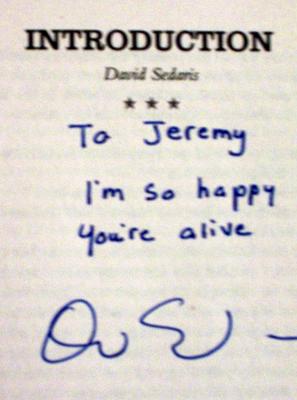 INTRODUCTION
David Sedaris
★ ★ ★
To Jeremy
I'm so happy
you're alive